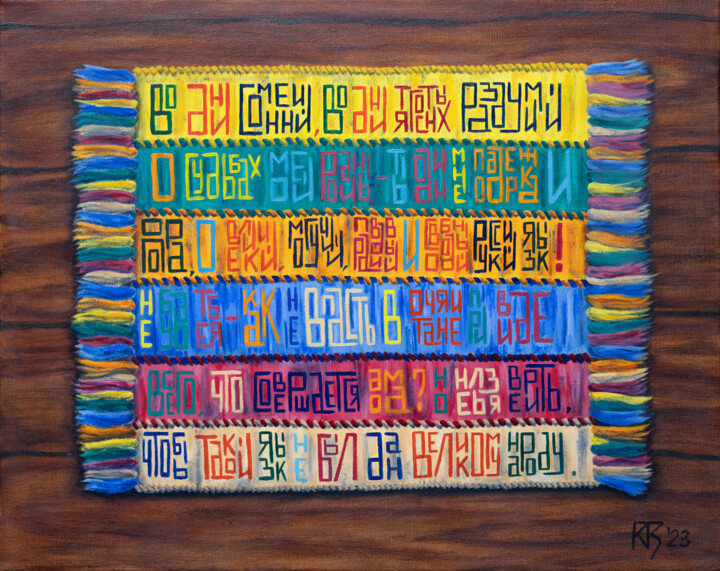 ВО ДНИ СОМНЕНИЙ, ВО ДНИ ТЯГОСТНЫХ РАЗДУМИЙ
О СУДЬБАХ МОЕЙ РОДИНЫ - ТЫ ОДИН МНЕ ПОДДЕРЖКА И
ОПОРА, О ВЕЛИКИЙ, МОГУЧИЙ, ПРАВДИВЫЙ И СВОБОДНЫЙ РУССКИЙ ЯЗЫК!
НЕ БУДЬ ТЕБЯ - КАК НЕ ВПАСТЬ В ОТЧАЯНИЕ ПРИ ВИДЕ
ВСЕГО, ЧТО СОВЕРШАЕТСЯ ДОМА? НО НЕЛЬЗЯ ВЕРИТЬ,
ЧТОБЫ ТАКОЙ ЯЗЫК НЕ БЫЛ ДАН ВЕЛИКОМУ НАРОДУ.
'23